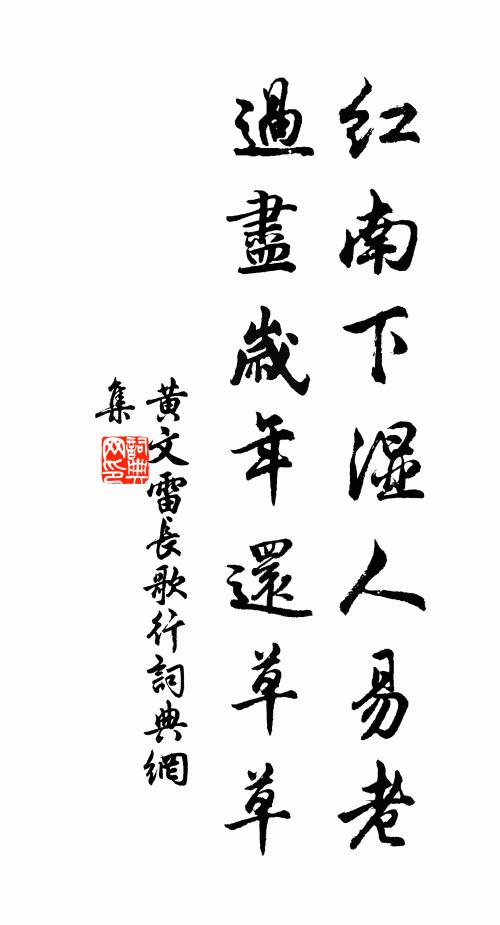 红南下濕人易老
過盡歲年還草草
黄文雷長歌行詞典網
集
詞典網印